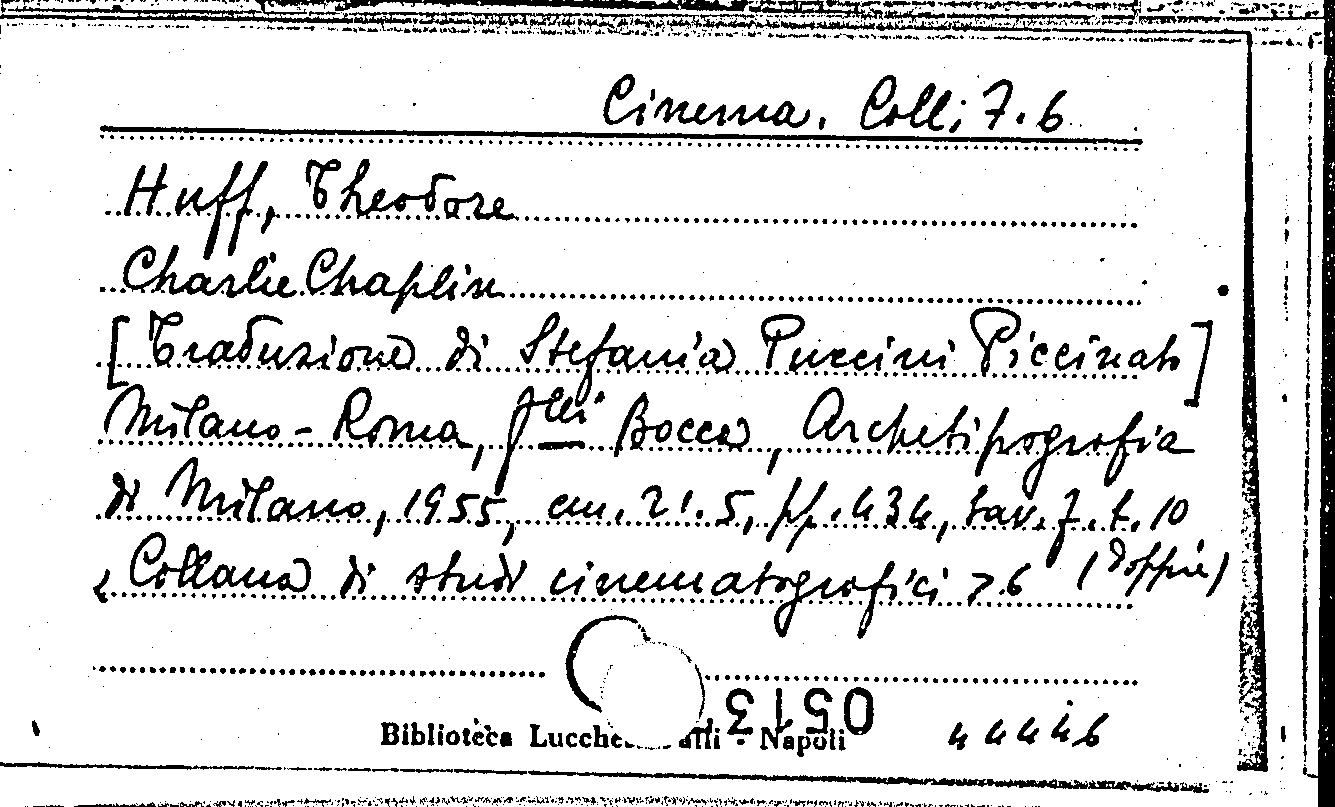 Cinema. Coll; 7.6
Huff, Theodore
Charlie Chaplin
[Traduzione di Stefania Puccini Piccinato]
Milano-Roma, f.lli Bocca, Archetipografia
di Milano, 1955, cm. 21.5, pp. 434, tav. f. t. 10
(doppie)
< Collana di studi cinematografici > 6
0513
Biblioteca Lucche alli - Napoli
44446